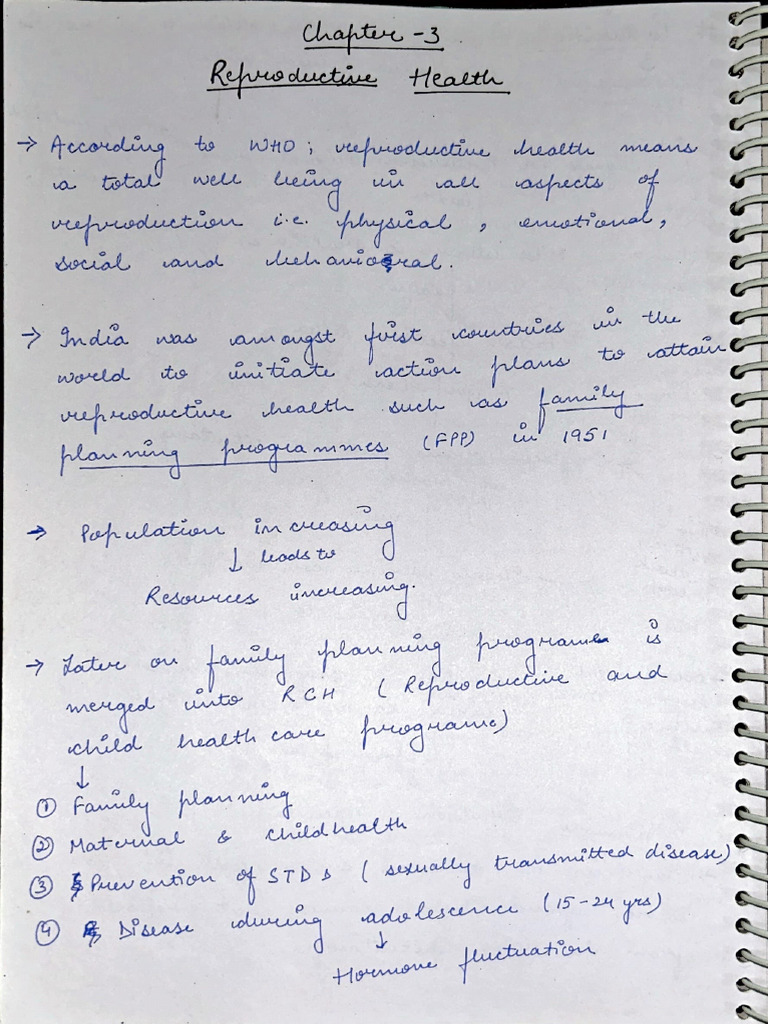 Chapter -3
Reproductive Health
→ According to WHO ; reproductive health means
a total well being in all aspects of
reproduction i.e. physical , emotional,
social and behavioral.
→ India was amongst first countries in the
world to initiate action plans to attain
reproductive health such as family
planning programmes (FPP) in 1951
→ Population increasing
↓ leads to
Resources increasing.
→ Later on family planning programe is
merged into RCH ( Reproductive and
child health care programe)
↓
① Family planning
② Maternal & childhealth
③ Prevention of STDs ( sexually transmitted disease)
④ Disease during adolescence (15-24 yrs)
↓
Hormone fluctuation